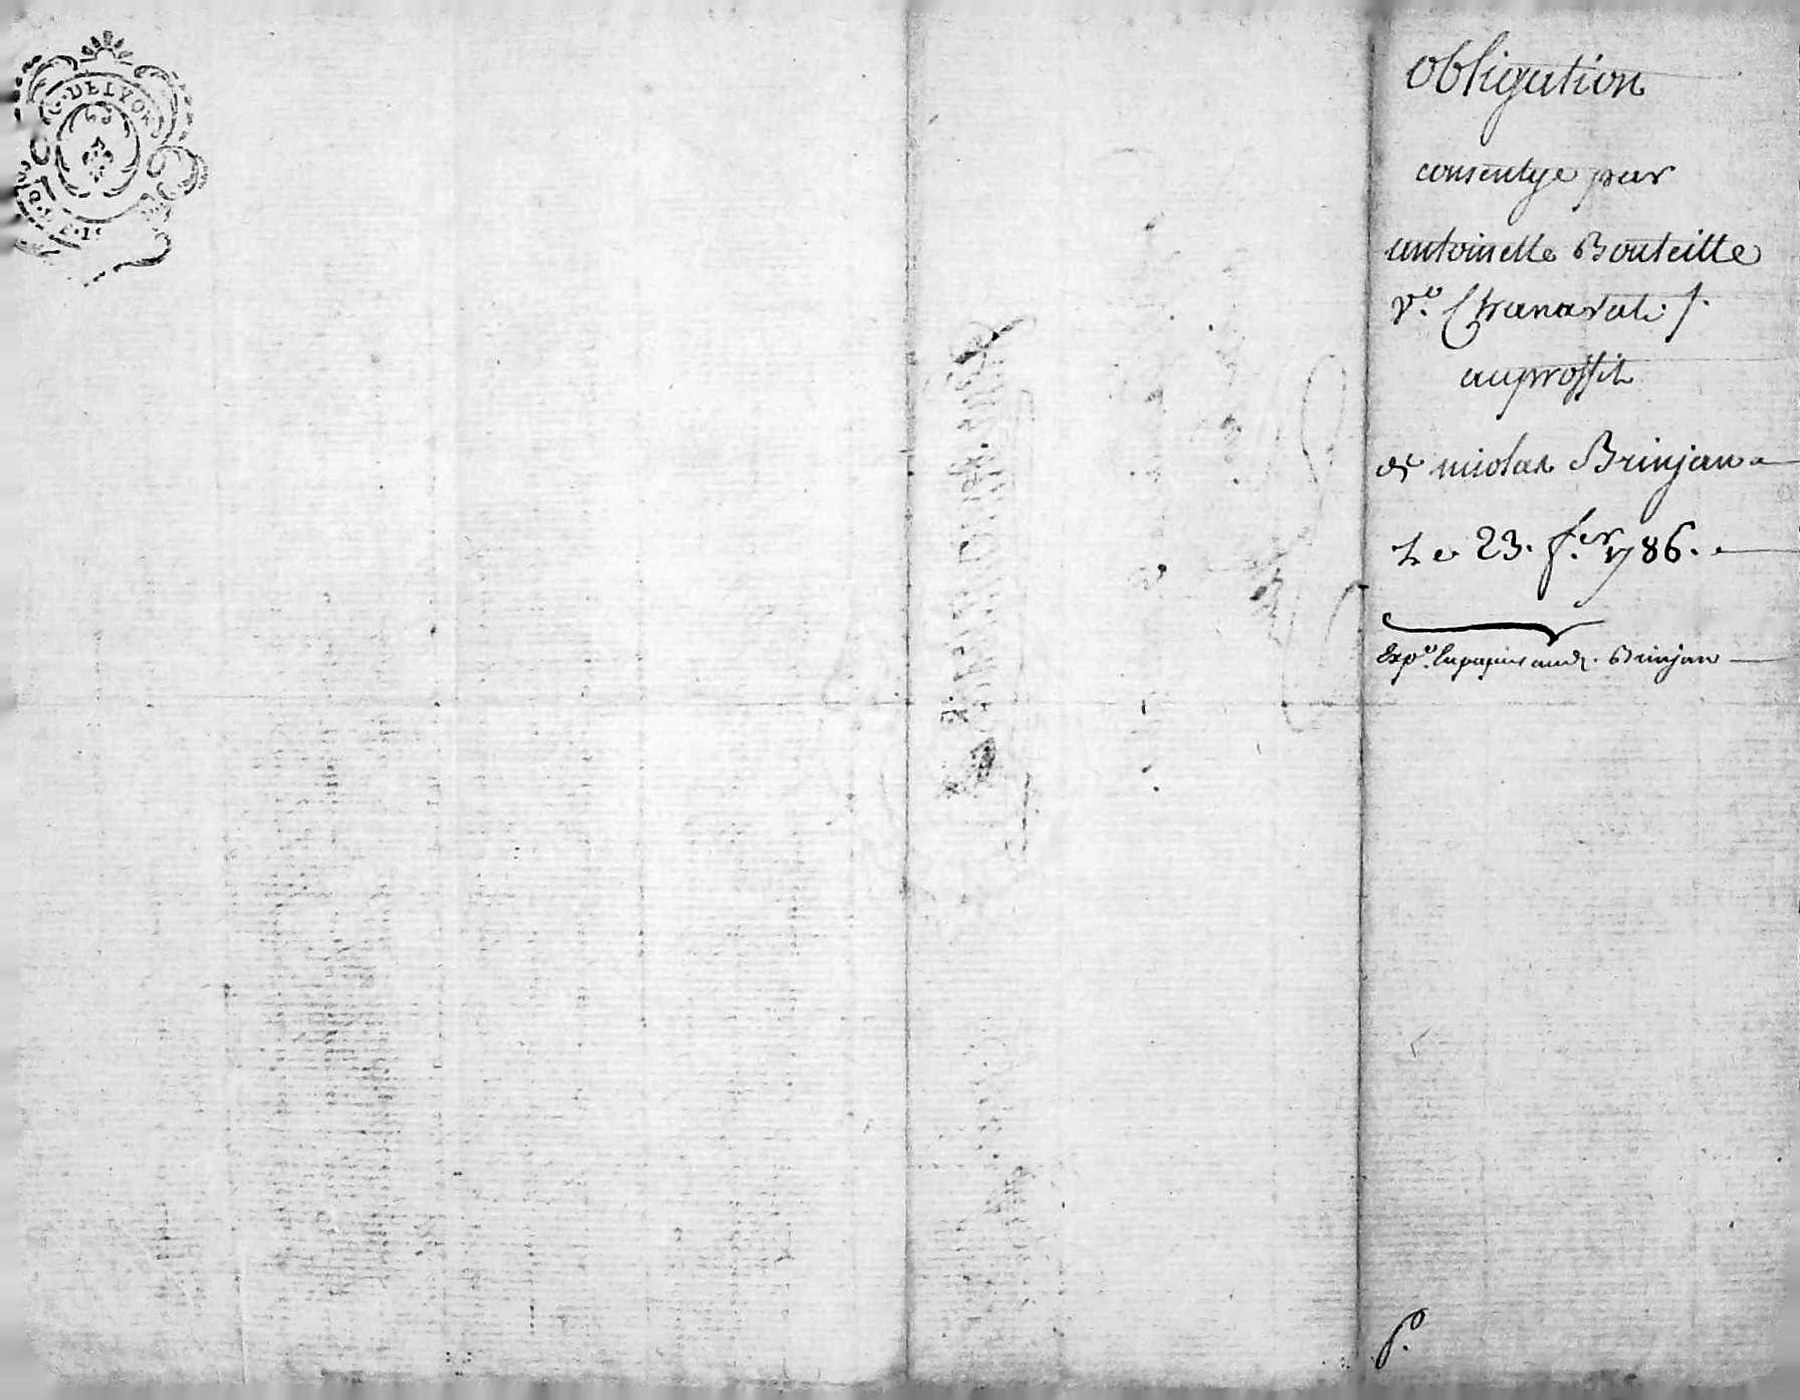 G. DE LYON
obligation
consentye par
antoinette Bouteille
Ve. Chanavat.
au proffit
de nicolas Brinjan
Le 23. fer. 1786.
Expe. en papier aud. Brinjan